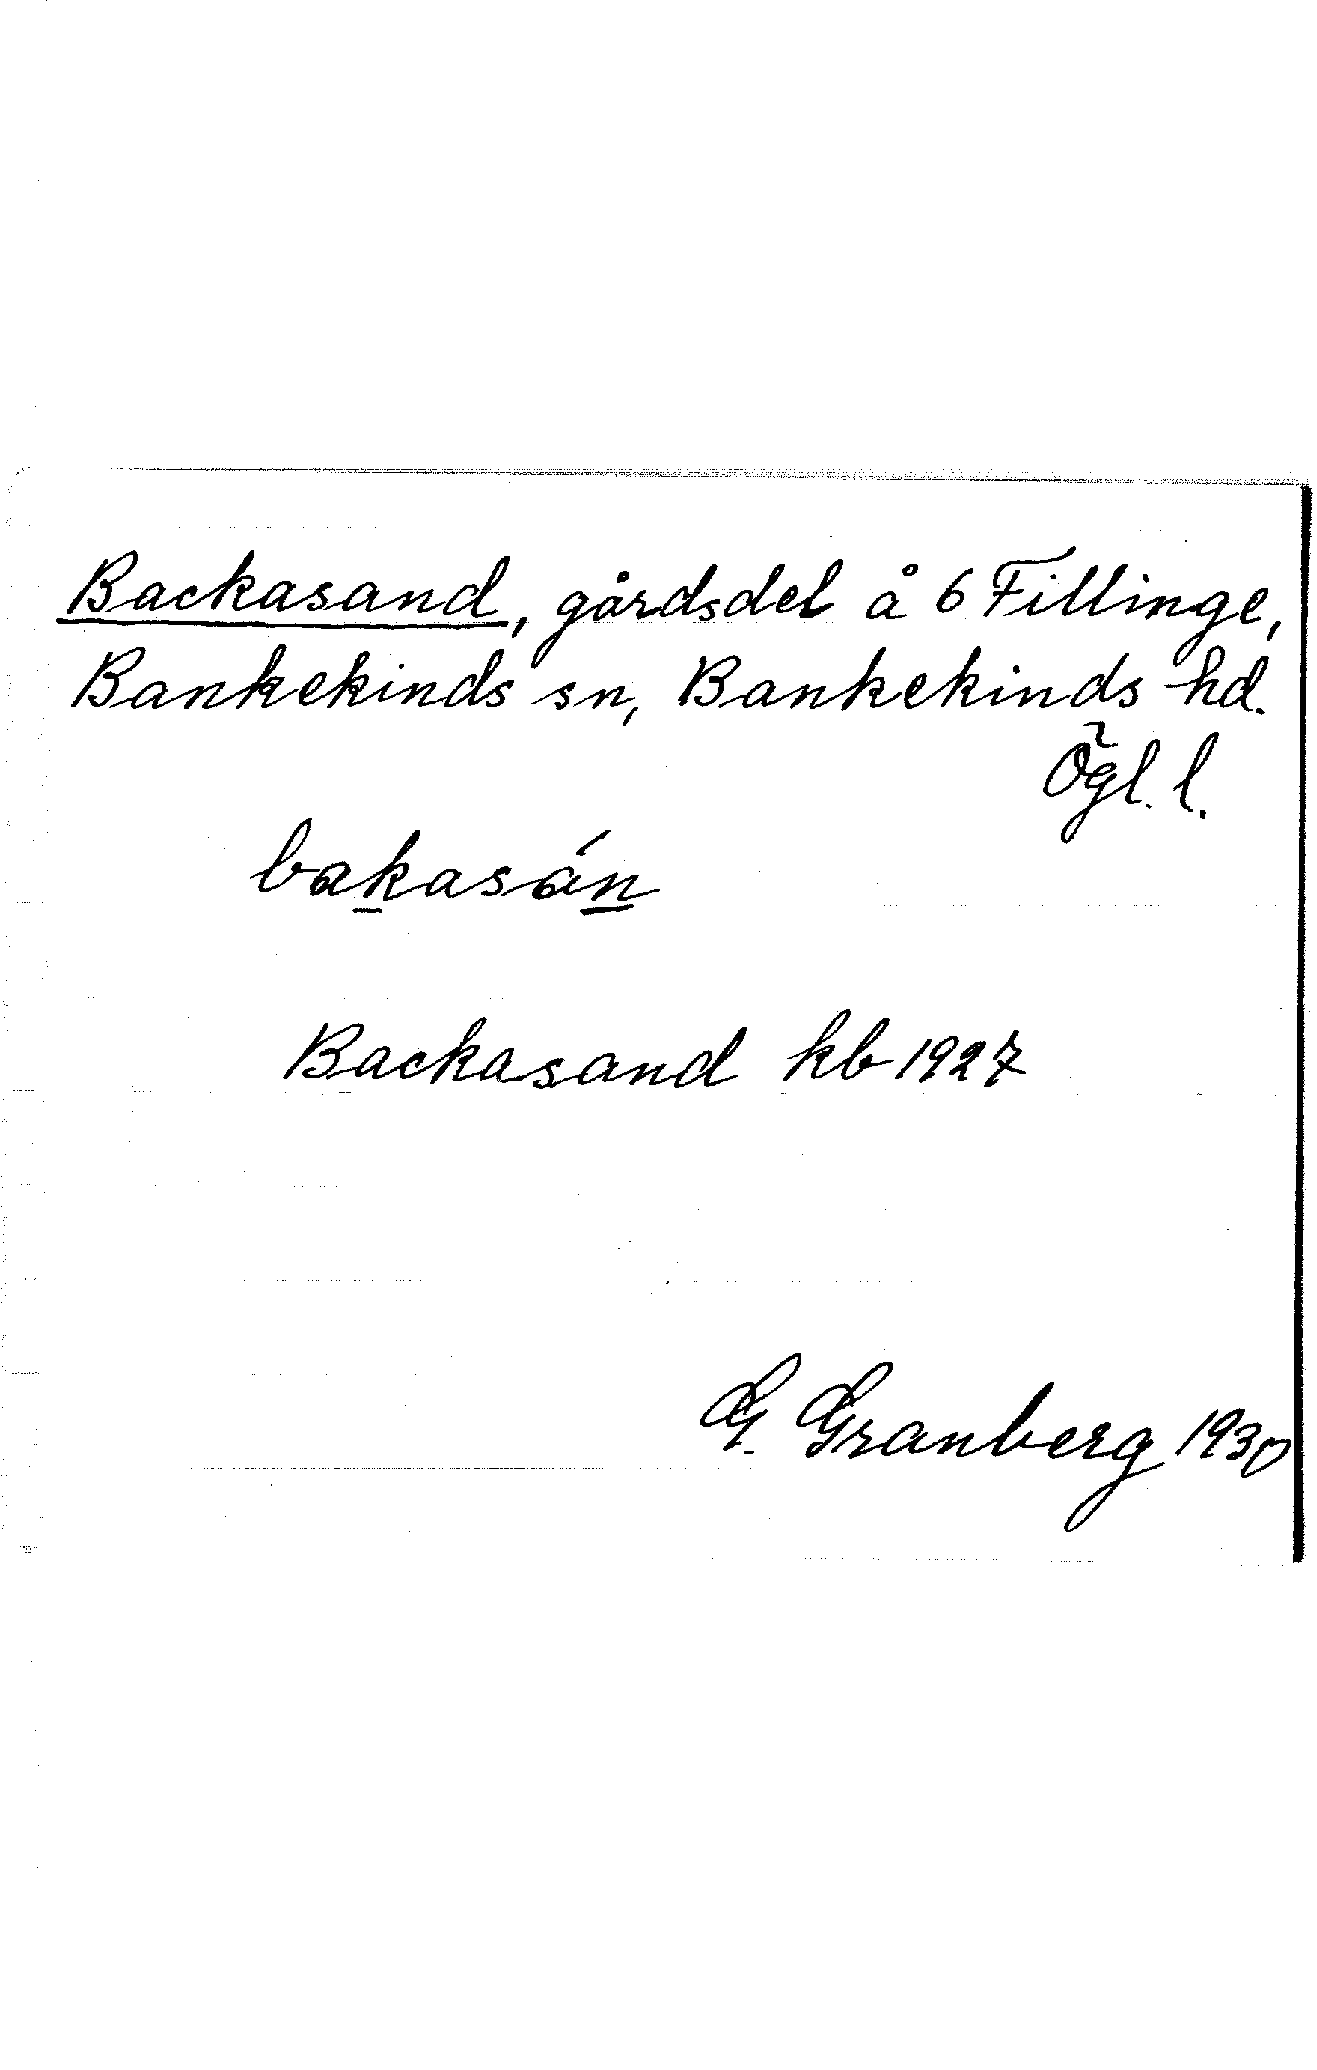 Backasand, gårdsdel å 6 Fillinge,
Bankekinds sn, Bankekinds hd.
Ögl. l.
bakasán
Backasand kb 1927
G. Granberg 1930